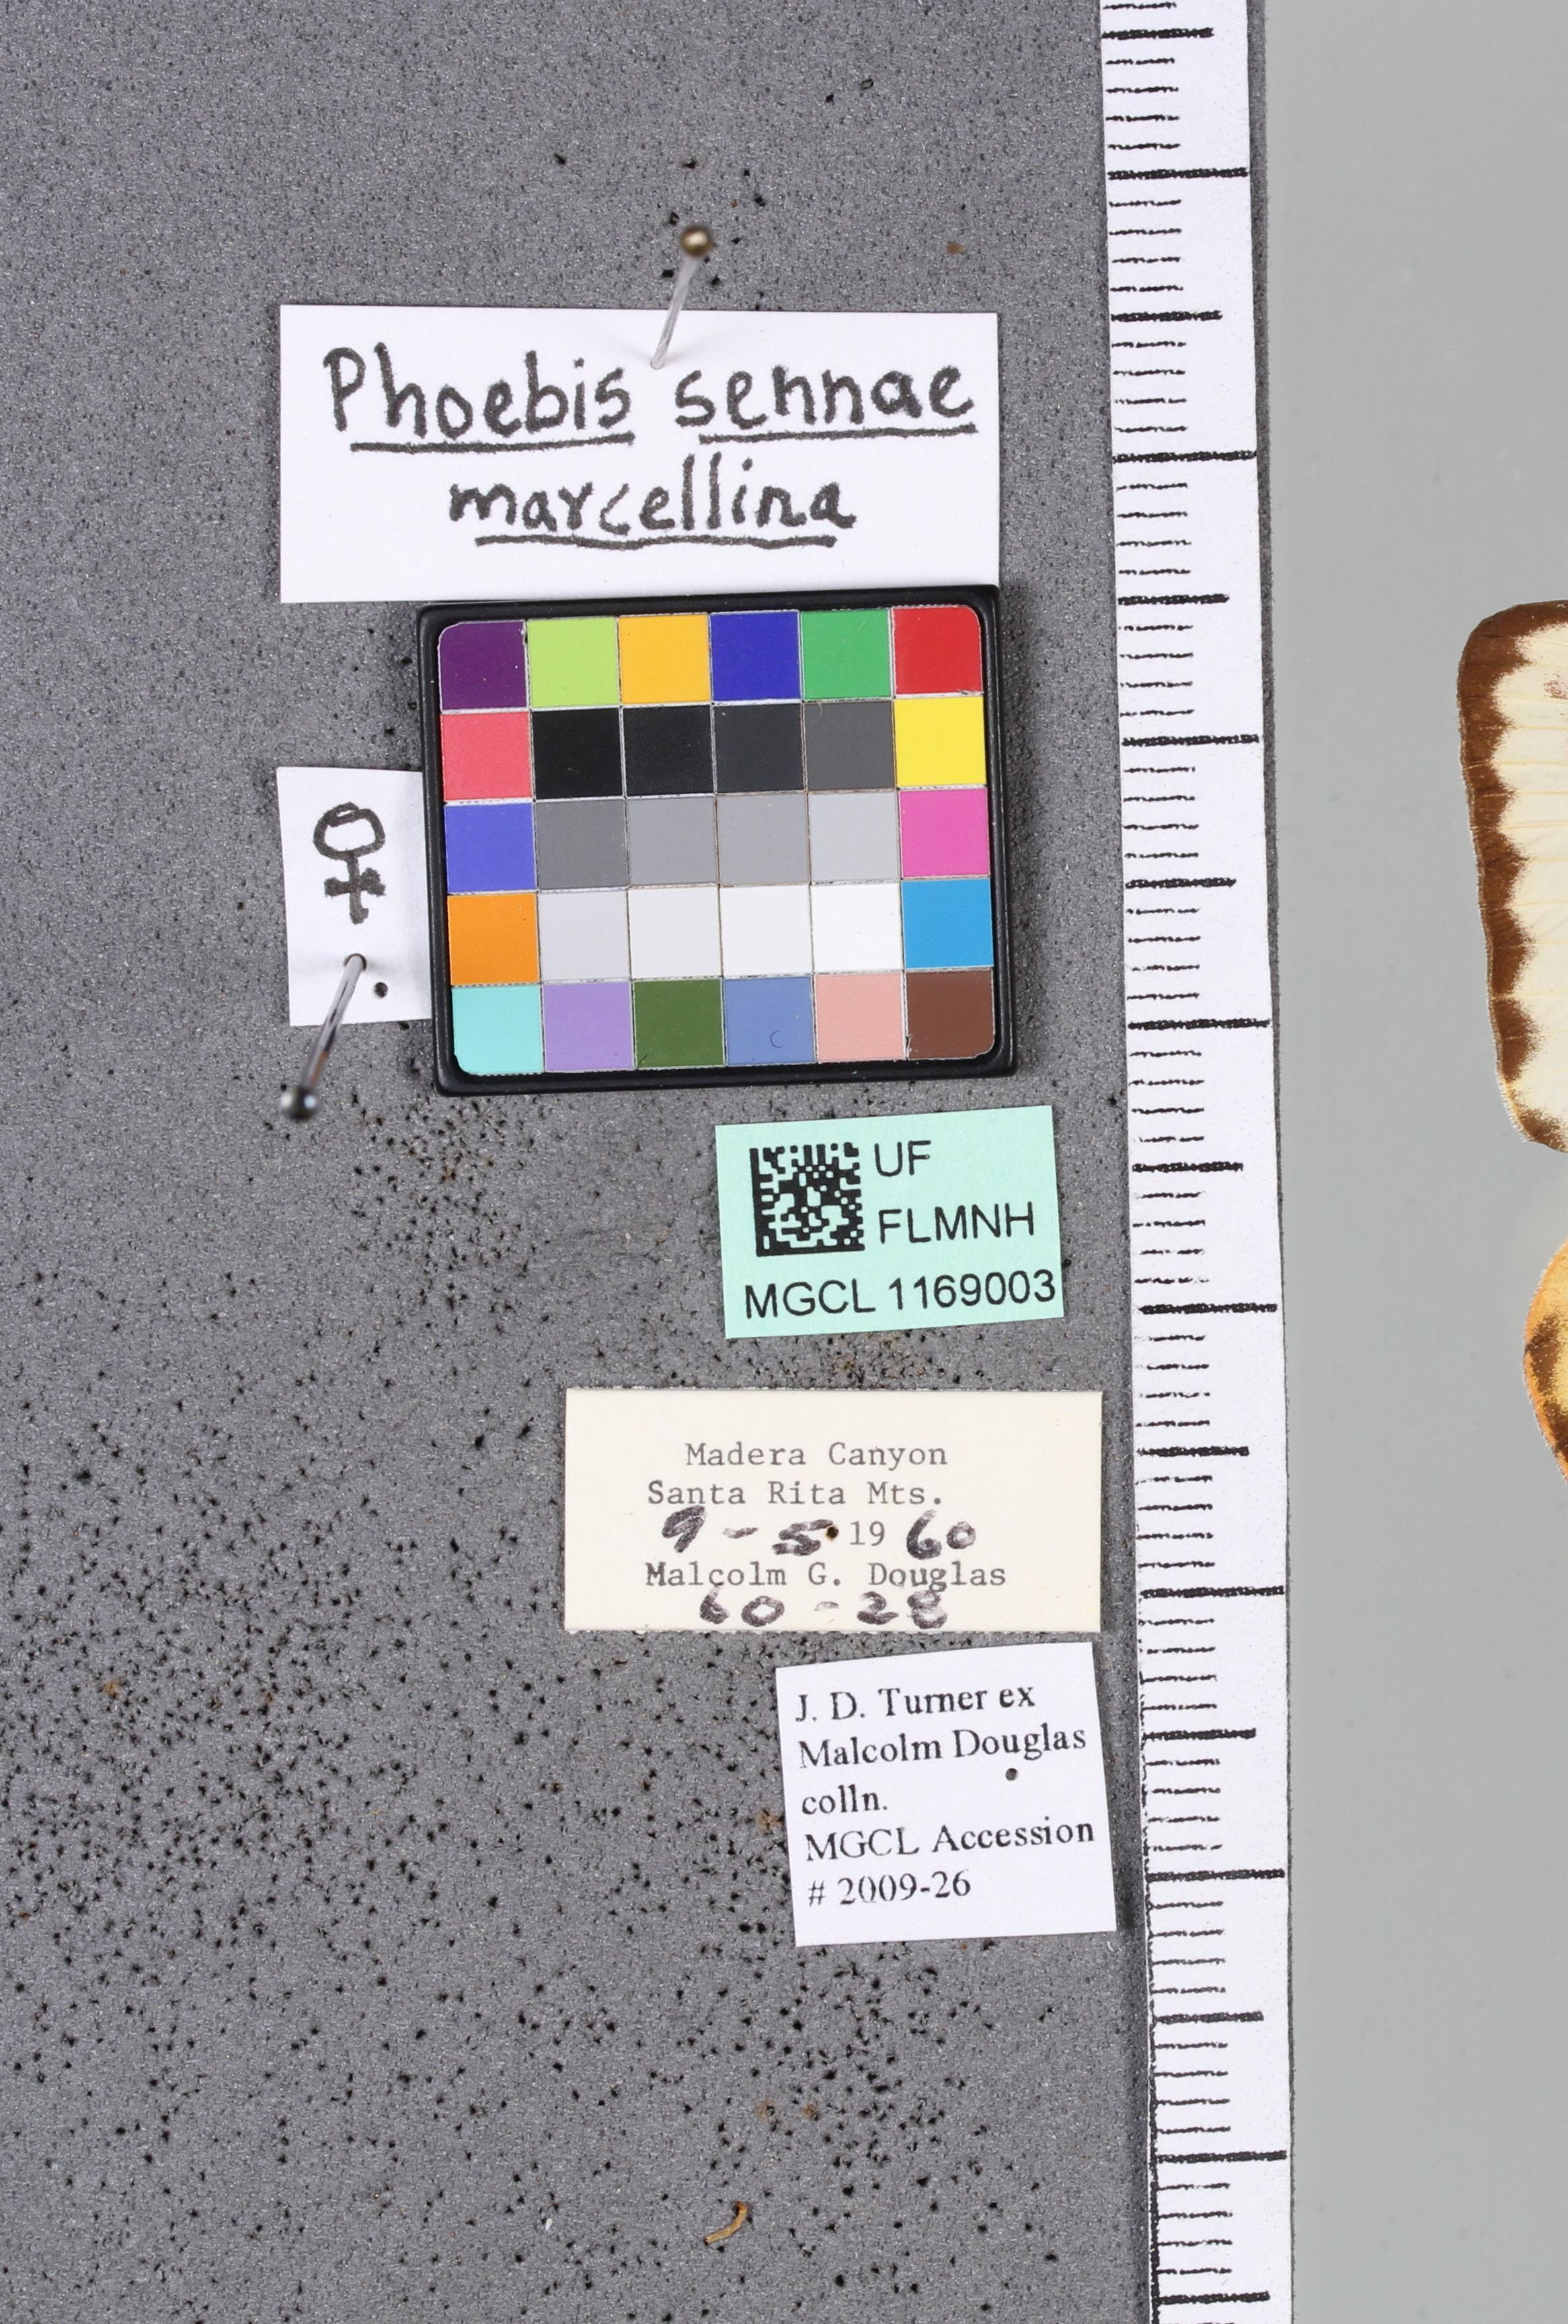 Phoebis sennae
marcellina
♀
UF
FLMNH
MGCL 1169003
Madera Canyon
Santa Rita Mts.
9-5 1960
Malcolm G. Douglas
60-28
J. D. Turner ex
Malcolm Douglas
colln.
MGCL Accession
# 2009-26